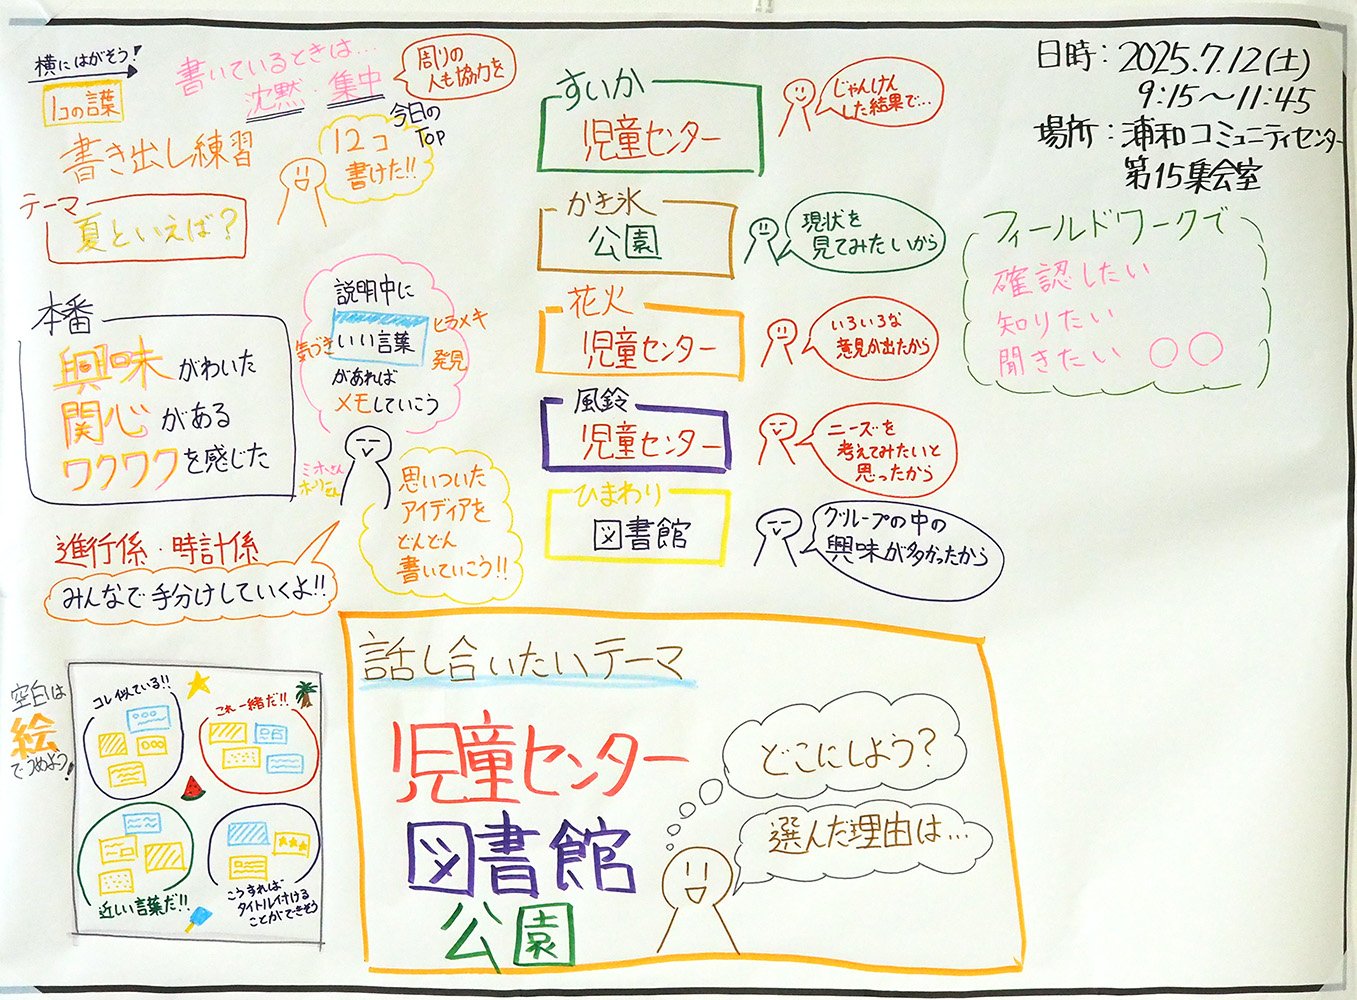 横にはがそう!
1コの言葉
書いているときは…
沈黙・集中
周りの
人も協力を
書き出し練習
今日の
Top
12コ
書けた!!
テーマ
夏といえば?
本番
興味がわいた
関心がある
ワクワクを感じた
説明中に
いい言葉
気づき
ヒラメキ
発見
があれば
メモしていこう
ミホさん
思いついた
アイディアを
どんどん
書いていこう!!
進行係・時計係
みんなで手分けしていくよ!!
空白は
絵
でうめよう!
コレ似ている!!
これ一緒だ!!
近しい言葉だ!!
こうすれば
タイトル付ける
ことができそう
すいか
児童センター
じゃんけん
した結果で…
かき氷
公園
現状を
見てみたいから
花火
児童センター
いろいろな
意見が出たから
風鈴
児童センター
ニーズを
考えてみたいと
思ったから
ひまわり
図書館
グループの中の
興味が多かったから
話し合いたいテーマ
児童センター
図書館
公園
どこにしよう?
選んだ理由は…
日時:2025.7.12(土)
9:15〜11:45
場所:浦和コミュニティセンター
第15集会室
フィールドワークで
確認したい
知りたい
聞きたい ○○